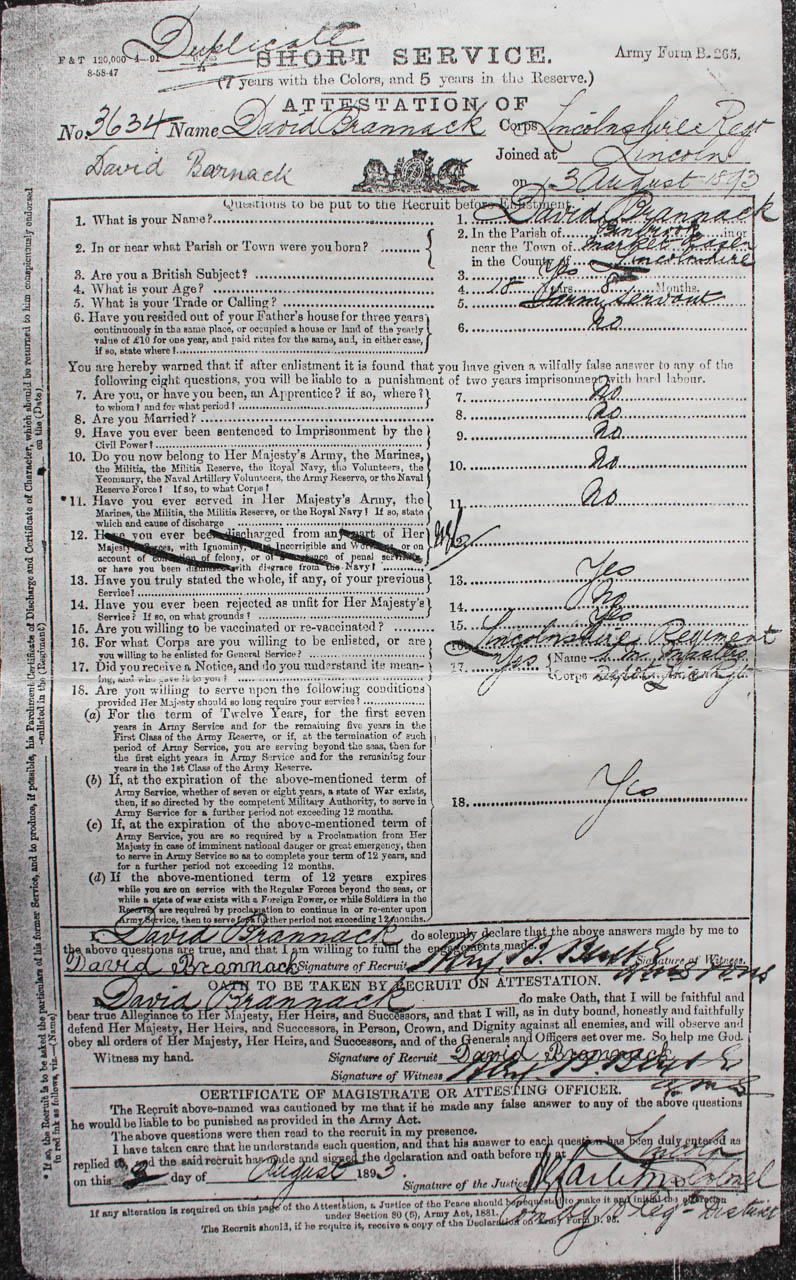 Duplicate
F & T 120,000 4—91
8-58-47
SHORT SERVICE.
Army Form B. 265.
(7 years with the Colors, and 5 years in the Reserve.)
ATTESTATION OF
No. 3634 Name David Brannack Corps Lincolnshire Regt
David Barnack
Joined at Lincoln
on 3 August 1893
Questions to be put to the Recruit before Enlistment.
1. What is your Name? 1. David Brannack
2. In or near what Parish or Town were you born? 2. In the Parish of in or
near the Town of Market Rasen
in the County of Lincolnshire
3. Are you a British Subject? 3. Yes
4. What is your Age? 4. 18 Years 8 Months.
5. What is your Trade or Calling? 5. Farm Servant
6. Have you resided out of your Father's house for three years
continuously in the same place, or occupied a house or land of the yearly
value of £10 for one year, and paid rates for the same, and, in either case,
if so, state where? 6. No
You are hereby warned that if after enlistment it is found that you have given a wilfully false answer to any of the
following eight questions, you will be liable to a punishment of two years imprisonment with hard labour.
7. Are you, or have you been, an Apprentice? if so, where?
to whom? and for what period? 7. No
8. Are you Married? 8. No
9. Have you ever been sentenced to Imprisonment by the
Civil Power? 9. No
10. Do you now belong to Her Majesty's Army, the Marines,
the Militia, the Militia Reserve, the Royal Navy, the Volunteers, the
Yeomanry, the Naval Artillery Volunteers, the Army Reserve, or the Naval
Reserve Force? If so, to what Corps? 10. No
*11. Have you ever served in Her Majesty's Army, the
Marines, the Militia, the Militia Reserve, or the Royal Navy? If so, state
which and cause of discharge 11 No
12. Have you ever been discharged from any part of Her
Majesty's Forces, with Ignominy, or as Incorrigible and Worthless, or on
account of conviction of felony, or of a sentence of penal servitude,
or have you been dismissed with disgrace from the Navy? 12.
13. Have you truly stated the whole, if any, of your previous
Service? 13. Yes
14. Have you ever been rejected as unfit for Her Majesty's
Service? If so, on what grounds? 14. No
15. Are you willing to be vaccinated or re-vaccinated? 15. Yes
16. For what Corps are you willing to be enlisted, or are
you willing to be enlisted for General Service? 16. Lincolnshire Regiment
17. Did you receive a Notice, and do you understand its mean-
ing, and who gave it to you? 17. Yes Name
Corps
18. Are you willing to serve upon the following conditions
provided Her Majesty should so long require your service?
(a) For the term of Twelve Years, for the first seven
years in Army Service and for the remaining five years in the
First Class of the Army Reserve, or if, at the termination of such
period of Army Service, you are serving beyond the seas, then for
the first eight years in Army Service and for the remaining four
years in the 1st Class of the Army Reserve.
(b) If, at the expiration of the above-mentioned term of
Army Service, whether of seven or eight years, a state of War exists,
then, if so directed by the competent Military Authority, to serve in
Army Service for a further period not exceeding 12 months.
18. Yes
(c) If, at the expiration of the above-mentioned term of
Army Service, you are so required by a Proclamation from Her
Majesty in case of imminent national danger or great emergency, then
to serve in Army Service so as to complete your term of 12 years, and
for a further period not exceeding 12 months.
(d) If the above-mentioned term of 12 years expires
while you are on service with the Regular Forces beyond the seas, or
while a state of war exists with a Foreign Power, or while Soldiers in the
Reserve are required by proclamation to continue in or re-enter upon
Army Service, then to serve for a further period not exceeding 12 months.
I David Brannack do solemnly declare that the above answers made by me to
the above questions are true, and that I am willing to fulfil the engagements made.
David Brannack Signature of Recruit Signature of Witness.
OATH TO BE TAKEN BY RECRUIT ON ATTESTATION.
I David Brannack do make Oath, that I will be faithful and
bear true Allegiance to Her Majesty, Her Heirs, and Successors, and that I will, as in duty bound, honestly and faithfully
defend Her Majesty, Her Heirs, and Successors, in Person, Crown, and Dignity against all enemies, and will observe and
obey all orders of Her Majesty, Her Heirs, and Successors, and of the Generals and Officers set over me. So help me God.
Witness my hand. Signature of Recruit David Brannack
Signature of Witness
CERTIFICATE OF MAGISTRATE OR ATTESTING OFFICER.
The Recruit above-named was cautioned by me that if he made any false answer to any of the above questions
he would be liable to be punished as provided in the Army Act.
The above questions were then read to the recruit in my presence.
I have taken care that he understands each question, and that his answer to each question has been duly entered as
replied to, and the said recruit has made and signed the declaration and oath before me at Lincoln
on this 3 day of August 1893.
Signature of the Justice Colonel
Comdg 10 Regl District
If any alteration is required on this page of the Attestation, a Justice of the Peace should be requested to make it and initial the alteration
under Section 80 (5), Army Act, 1881.
The Recruit should, if he require it, receive a copy of the Declaration on Army Form B. 98.
* If so, the Recruit is to be asked the particulars of his former Service, and to produce, if possible, his Parchment Certificate of Discharge and Certificate of Character, which should be returned to him conspicuously endorsed
in red ink as follows, viz. (Name) enlisted in the (Regiment) on the (Date)